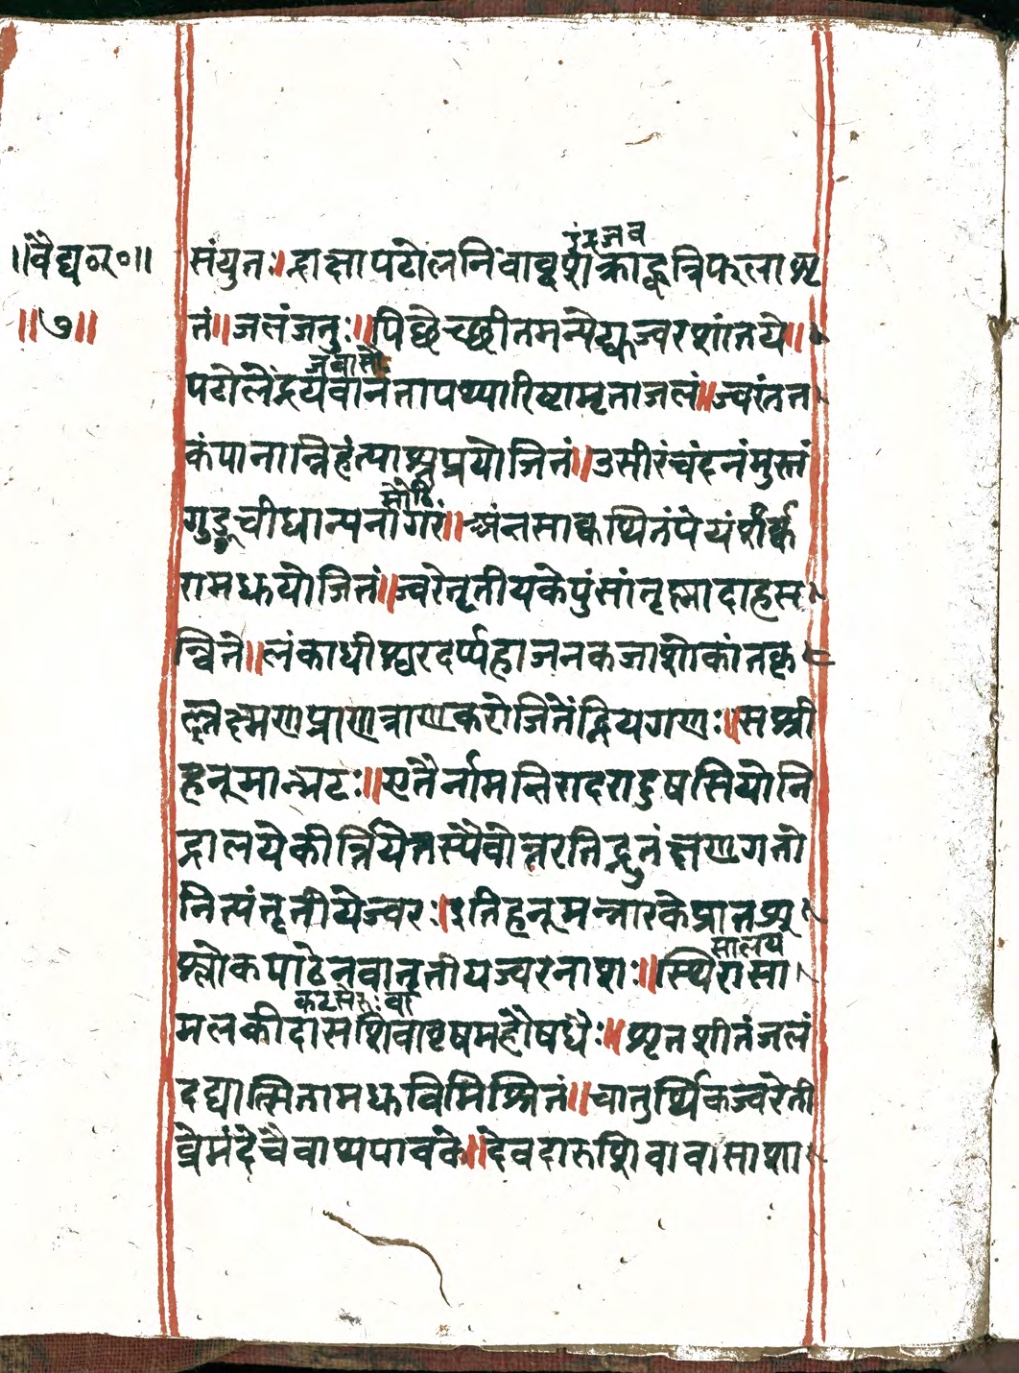 ॥वैद्य०र०॥
॥७॥
इंद्रजव
संयुतः॥द्राक्षापटोलनिंवाव्दशक्राह्वत्रिफलाशृ
तं॥जलंजंतुः॥पिवेच्छीतमन्येद्युज्वरशांतये॥
जवासो
पटोलेंद्रयवानंतापथ्यारिष्टामृताजलं॥ज्वरंतत
कंपानान्निहंत्याशुप्रयोजितं॥उसीरंचंदनंमुस्तं
सोंठि
गुडूचीधान्यनागरं॥अंतसाक्वथितंपेयंशर्क
रामधुयोजितं॥ज्वरेतृतीयकेपुंसांतृष्णादाहस
न्विते॥लंकाधीश्वरदर्प्पहाजनकजाशोकांतकृ
ल्लक्ष्मणप्राणत्राणकरोजितेंद्रियगणः॥सश्री
हनूमान्भटः॥एतैर्नामभिरादरादुषसियोनि
द्रालयेकीर्त्तियेत्तस्यैवोत्तरतिद्रुतंक्षणगतो
नित्यंतृतीयेज्वरः॥इतिहनूमन्तारकेप्रातश्र्
सालय
श्लोकपाठेनवातृतीयज्वरनाशः॥स्थिरासा
कटसेरुःवा
मलकीदासशिवावृषमहौषधैः॥शृतशीतंजलं
दद्यात्सितामधुविमिश्रितं॥चातुर्थिकज्वरेती
व्रेमंदेचैवाथपावके॥देवदारुशिवावासाशा